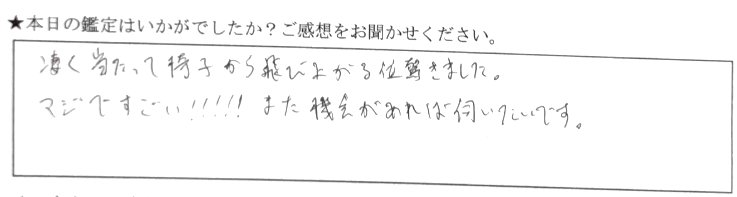 ★本日の鑑定はいかがでしたか？ご感想をお聞かせください。
凄く当たって椅子から飛び上がる位驚きました。
マジですごい!!!!! また機会があれば伺いたいです。